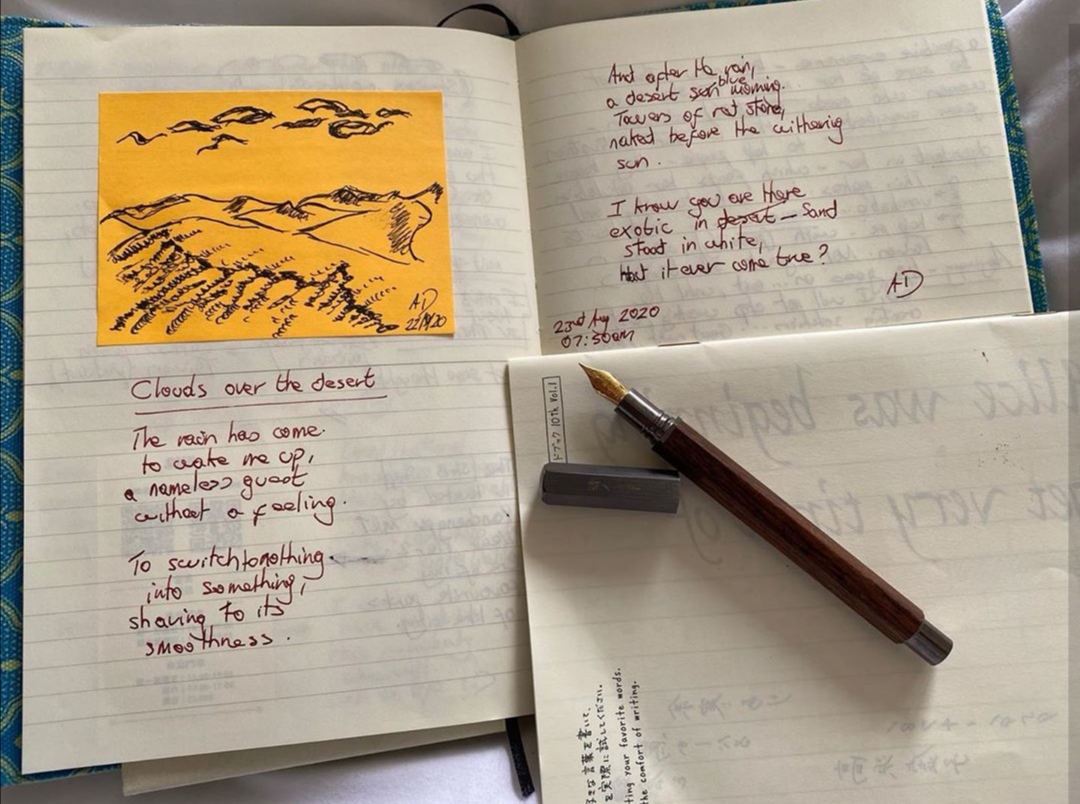 AD
22/8/20
Clouds over the desert
The rain has come
to wake me up,
a nameless guest
without a feeling.
To switch to nothing
into something,
shaving to its
smoothness.
And after the rain,
a desert sun blue morning.
Towers of red stone,
naked before the withering
sun.
I know you are there
exotic in desert – sand
stood in white,
it ever come true?
AD
23rd Aug 2020
07:50am
ドブック 10th Vol.1
Alice was beginn
get very tir of
な言葉を書いて、
実際に試してください。
ting your favorite words.
the comfort of writing.